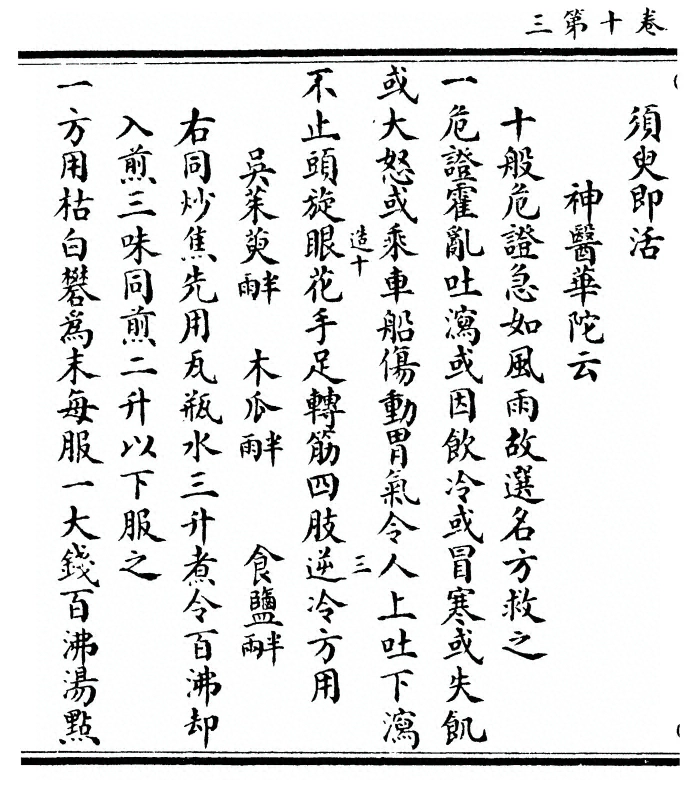 卷十第三
須臾即活
神醫華陀云
十般危證急如風雨故選名方救之
一危證霍亂吐瀉或因飲冷或冒寒或失飢
或大怒或乘車船傷動胃氣令人上吐下瀉
造十
三
不止頭旋眼花手足轉筋四肢逆冷方用
吳茱萸半兩 木瓜半兩 食鹽半兩
右同炒焦先用瓦瓶水三升煮令百沸却
入煎三味同煎二升以下服之
一方用枯白礬為末每服一大錢百沸湯點